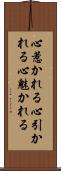 心惹かれる心引か
れる心魅かれる